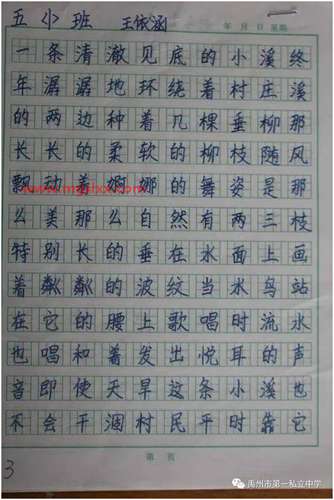 五小班 王依涵 年 月 日 星期
一条清澈见底的小溪终
年潺潺地环绕着村庄溪
的两边种着几棵垂柳那
长长的柔软的柳枝随风
飘动着婀娜的舞姿是那
么美那么自然有两三枝
特别长的垂在水面上画
着粼粼的波纹当水鸟站
在它的腰上歌唱时流水
也唱和着发出悦耳的声
音即使天旱这条小溪也
不会干涸村民平时靠它
第 页
3
禹州市第一私立中学